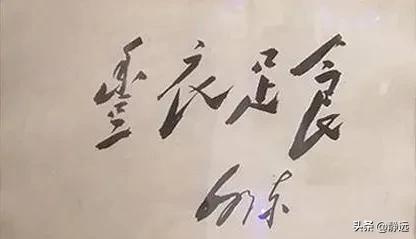 豐衣足食
泽东
头条 @静远